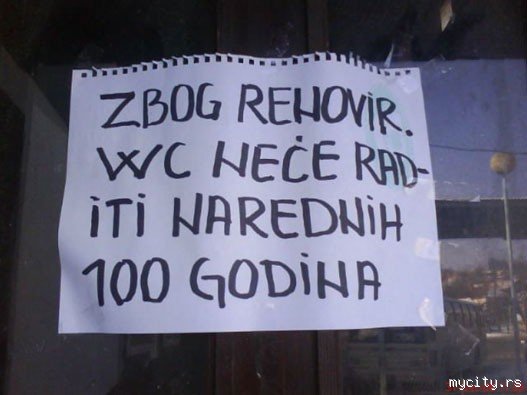 ZBOG RENOVIR.
WC NEĆE RAD-
ITI NAREDNIH
100 GODINA
mycity.rs